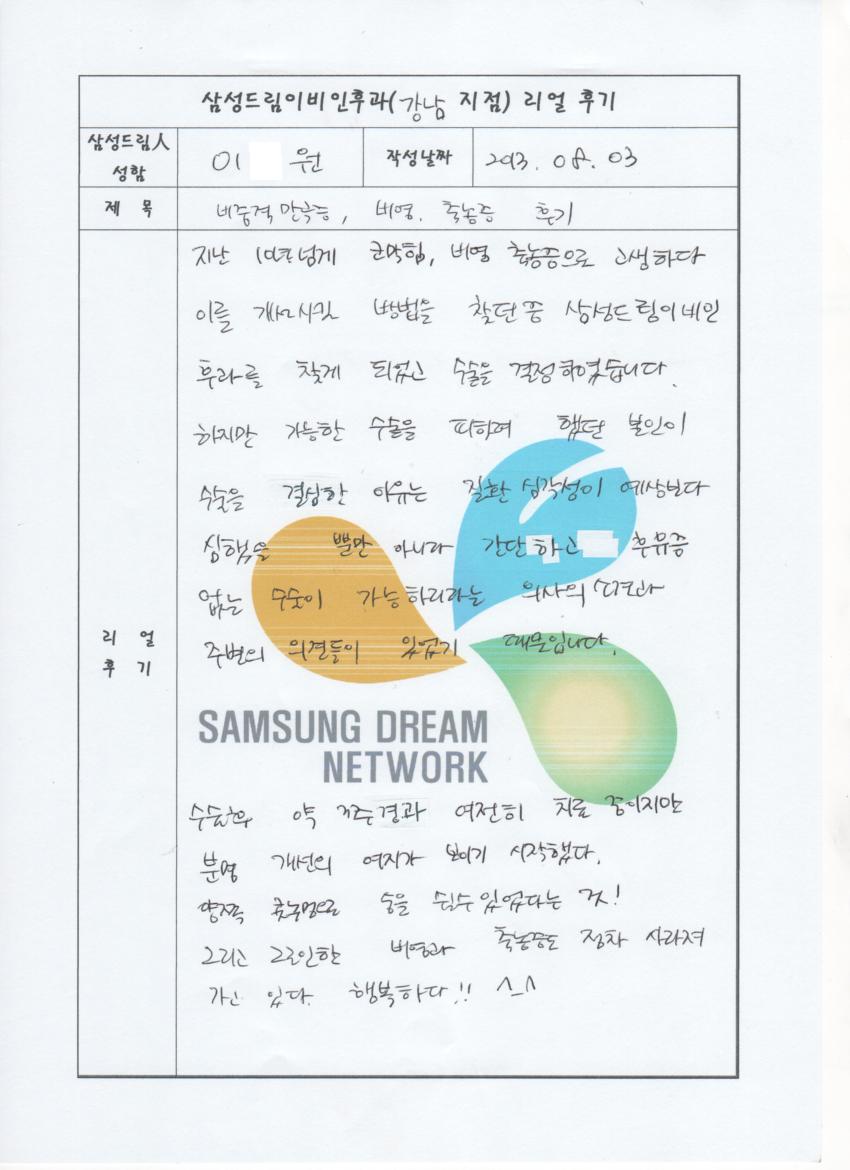 삼성드림이비인후과(강남 지점) 리얼 후기
삼성드림人 성함
이 원
작성날짜
2013. 08. 03
제 목
비중격 만곡증, 비염, 축농증 후기
리 얼 후 기
지난 10년 넘게 코막힘, 비염 축농증으로 고생하다
이를 개선시킬 방법을 찾던 중 삼성드림이비인
후과를 찾게 되었고 수술을 결정하였습니다.
하지만 가능한 수술을 피하며 했던 본인이
수술을 결심한 이유는 질환 심각성이 예상보다
심했을 뿐만 아니라 간단하고 후유증
없는 수술이 가능하리라는 의사의 소견과
주변의 의견들이 있었기 때문입니다.
SAMSUNG DREAM
NETWORK
수술후 약 경과 여전히 치료 중이지만
분명 개선의 여지가 보이기 시작했다.
양쪽 콧구멍으로 숨을 쉴수 있었다는 것!
그리고 그로인한 비염과 축농증도 점차 사라져
가고 있다. 행복하다!! ^_^